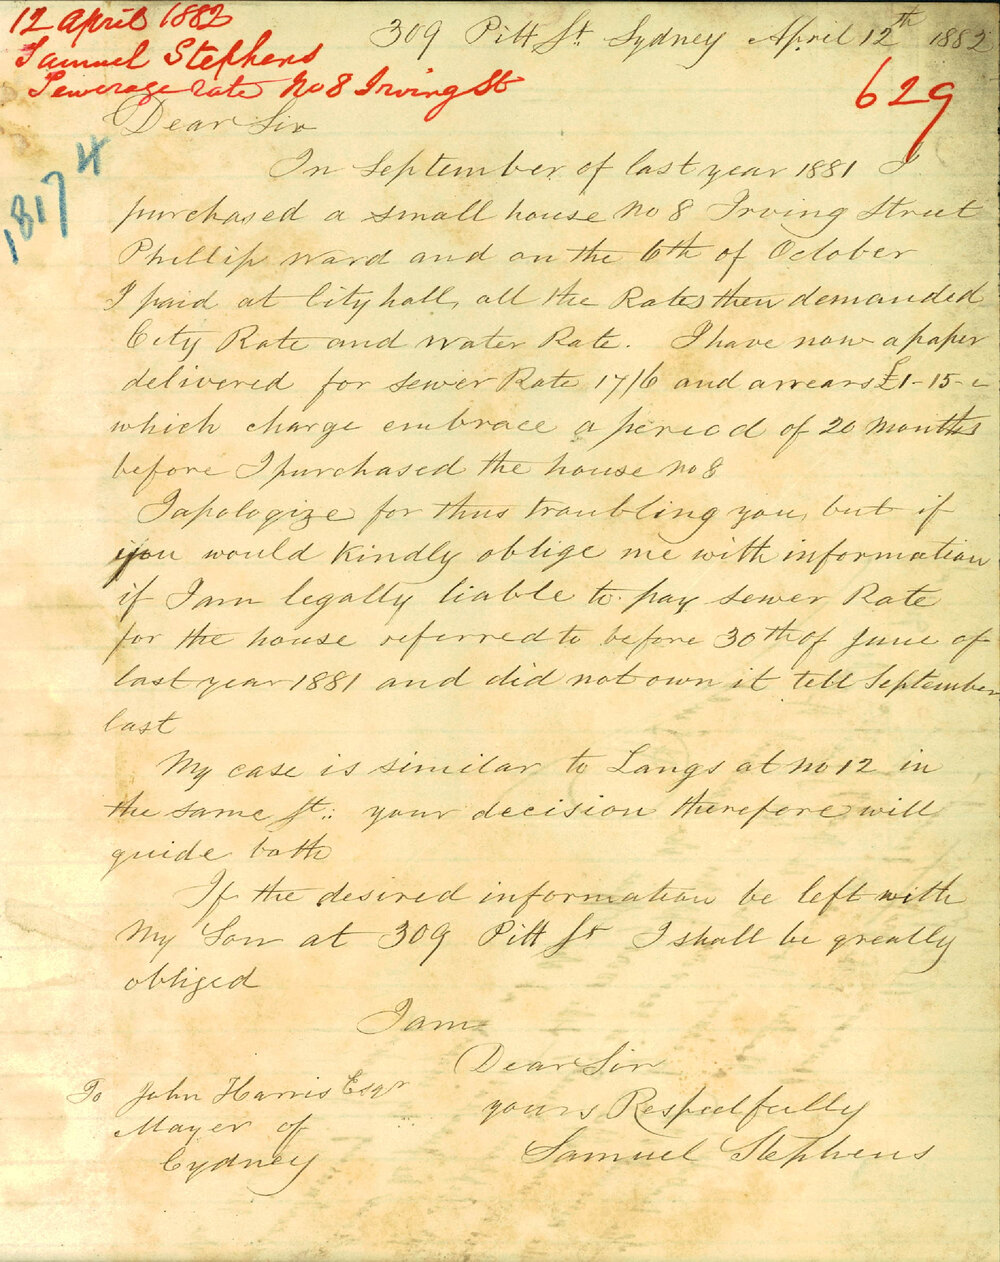 12 April 1882
Samuel Stephens
Sewerage rate No 8 Irving St
629
18174
309 Pitt St. Sydney April 12th 1882
Dear Sir
In September of last year 1881 I
purchased a small house No 8 Irving Street
Phillip Ward and on the 6th of October
I paid at City hall, all the Rates then demanded
City Rate and Water Rate. I have now a paper
delivered for sewer Rate 17/6 and arrears £1-15-
which charge embrace a period of 20 Months
before I purchased the house no 8
I apologize for thus troubling you, but if
you would Kindly oblige me with information
if I am legally liable to pay sewer Rate
for the house referred to before 30th of June of
last year 1881 and did not own it till September
last
My case is similar to Langs at no 12 in
the same St: your decision therefore will
guide both
If the desired information be left with
My Son at 309 Pitt St I shall be greatly
obliged
I am
Dear Sir
yours Respectfully
Samuel Stephens
To John Harris Esqr
Mayer of
Cydney